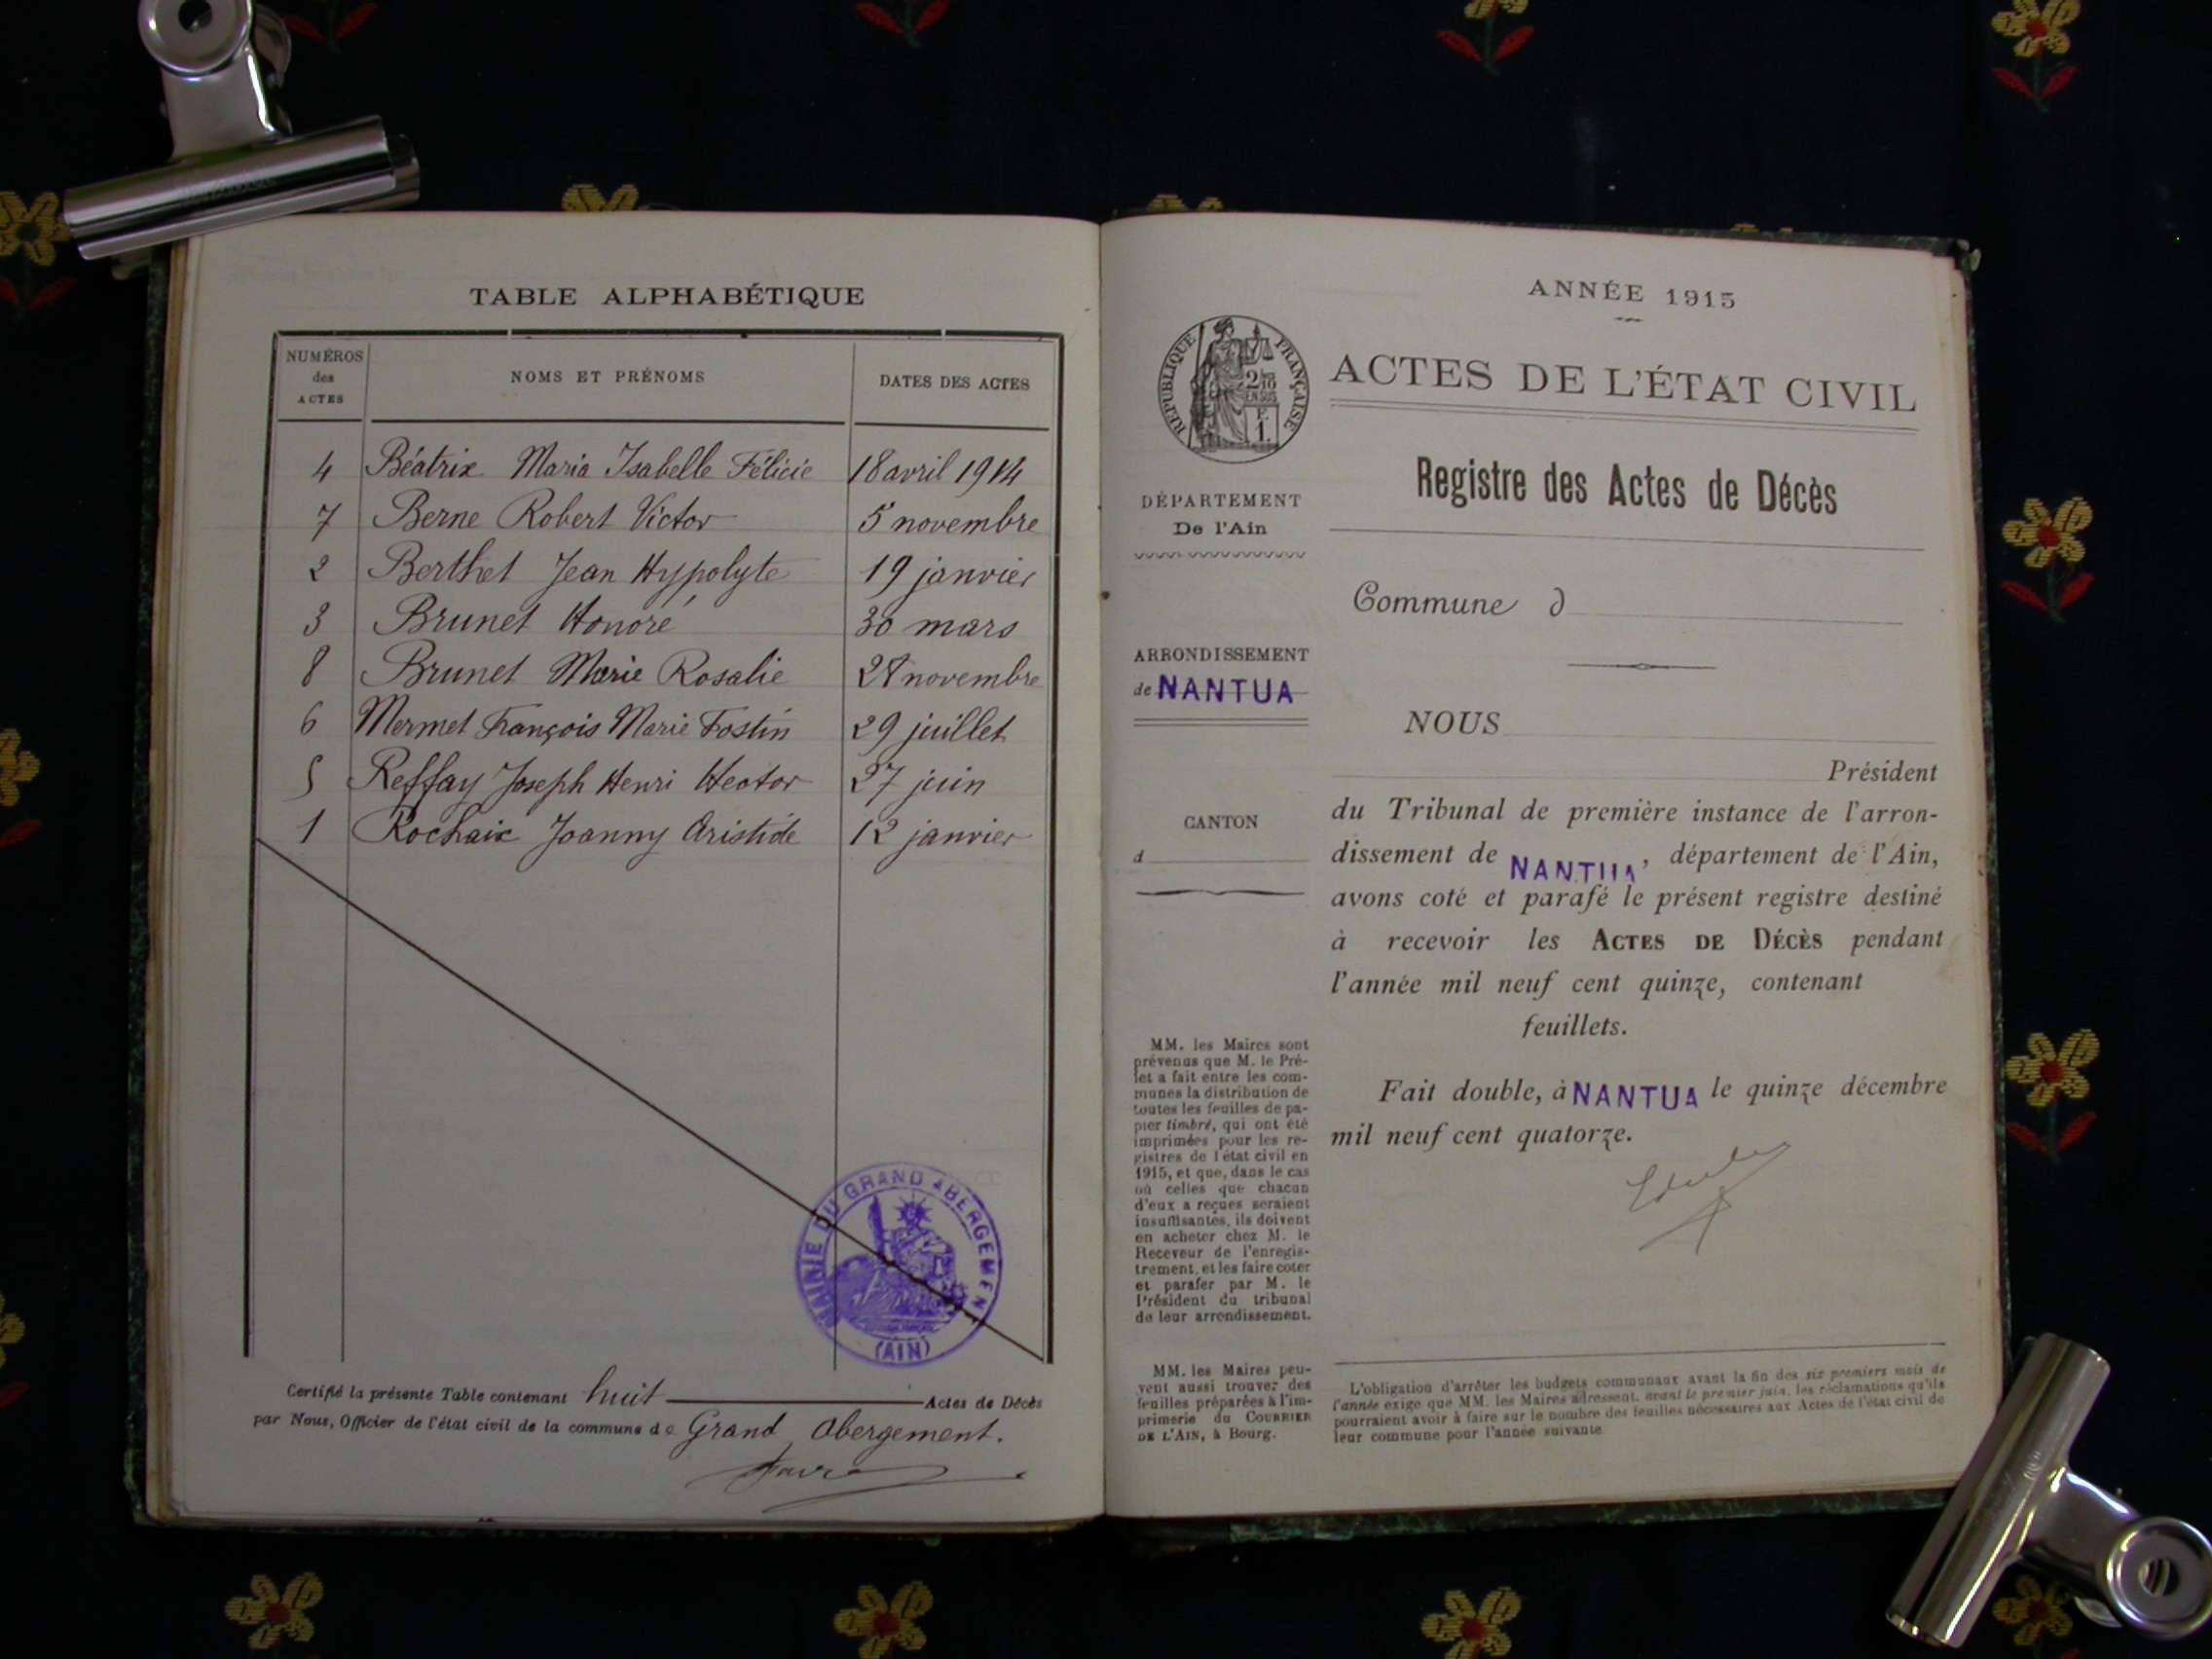 TABLE ALPHABÉTIQUE
NUMÉROS
des
ACTES
NOMS ET PRÉNOMS
DATES DES ACTES
4 Béatrix Maria Isabelle Félicie 18 avril 1914
7 Berne Robert Victor 5 novembre
2 Berthet Jean Hypolyte 19 janvier
3 Brunet Honoré 30 mars
8 Brunet Marie Rosalie novembre
6 Mermet François Marie Fostin 29 juillet
5 Reffay Joseph Henri Hector 27 juin
1 Rochaix Joanny Aristide 12 janvier
MAIRIE DU GRAND ABERGEMENT
(AIN)
Certifié la présente Table contenant huit Actes de Décès
par Nous, Officier de l'état civil de la commune de Grand Abergement.
Favre
ANNÉE 1915
RÉPUBLIQUE FRANÇAISE
2/10
EN SUS
F.
1.
ACTES DE L'ÉTAT CIVIL
Registre des Actes de Décès
DÉPARTEMENT
De l'Ain
Commune d
ARRONDISSEMENT
de NANTUA
CANTON
d
NOUS
Président
du Tribunal de première instance de l'arron-
dissement de NANTUA, département de l'Ain,
avons coté et parafé le présent registre destiné
à recevoir les ACTES DE DÉCÈS pendant
l'année mil neuf cent quinze, contenant
feuillets.
Fait double, à NANTUA le quinze décembre
mil neuf cent quatorze.
MM. les Maires sont
prévenus que M. le Pré-
fet a fait entre les com-
munes la distribution de
toutes les feuilles de pa-
pier timbré, qui ont été
imprimées pour les re-
gistres de l'état civil en
1915, et que, dans le cas
où celles que chacun
d'eux a reçues seraient
insuffisantes, ils doivent
en acheter chez M. le
Receveur de l'enregis-
trement, et les faire coter
et parafer par M. le
Président du tribunal
de leur arrondissement.
MM. les Maires peu-
vent aussi trouver des
feuilles préparées à l'im-
primerie du COURRIER
DE L'AIN, à Bourg.
L'obligation d'arrêter les budgets communaux avant la fin des six premiers mois de
l'année exige que MM. les Maires adressent, avant le premier juin, les réclamations qu'ils
pourraient avoir à faire sur le nombre des feuilles nécessaires aux Actes de l'état civil de
leur commune pour l'année suivante